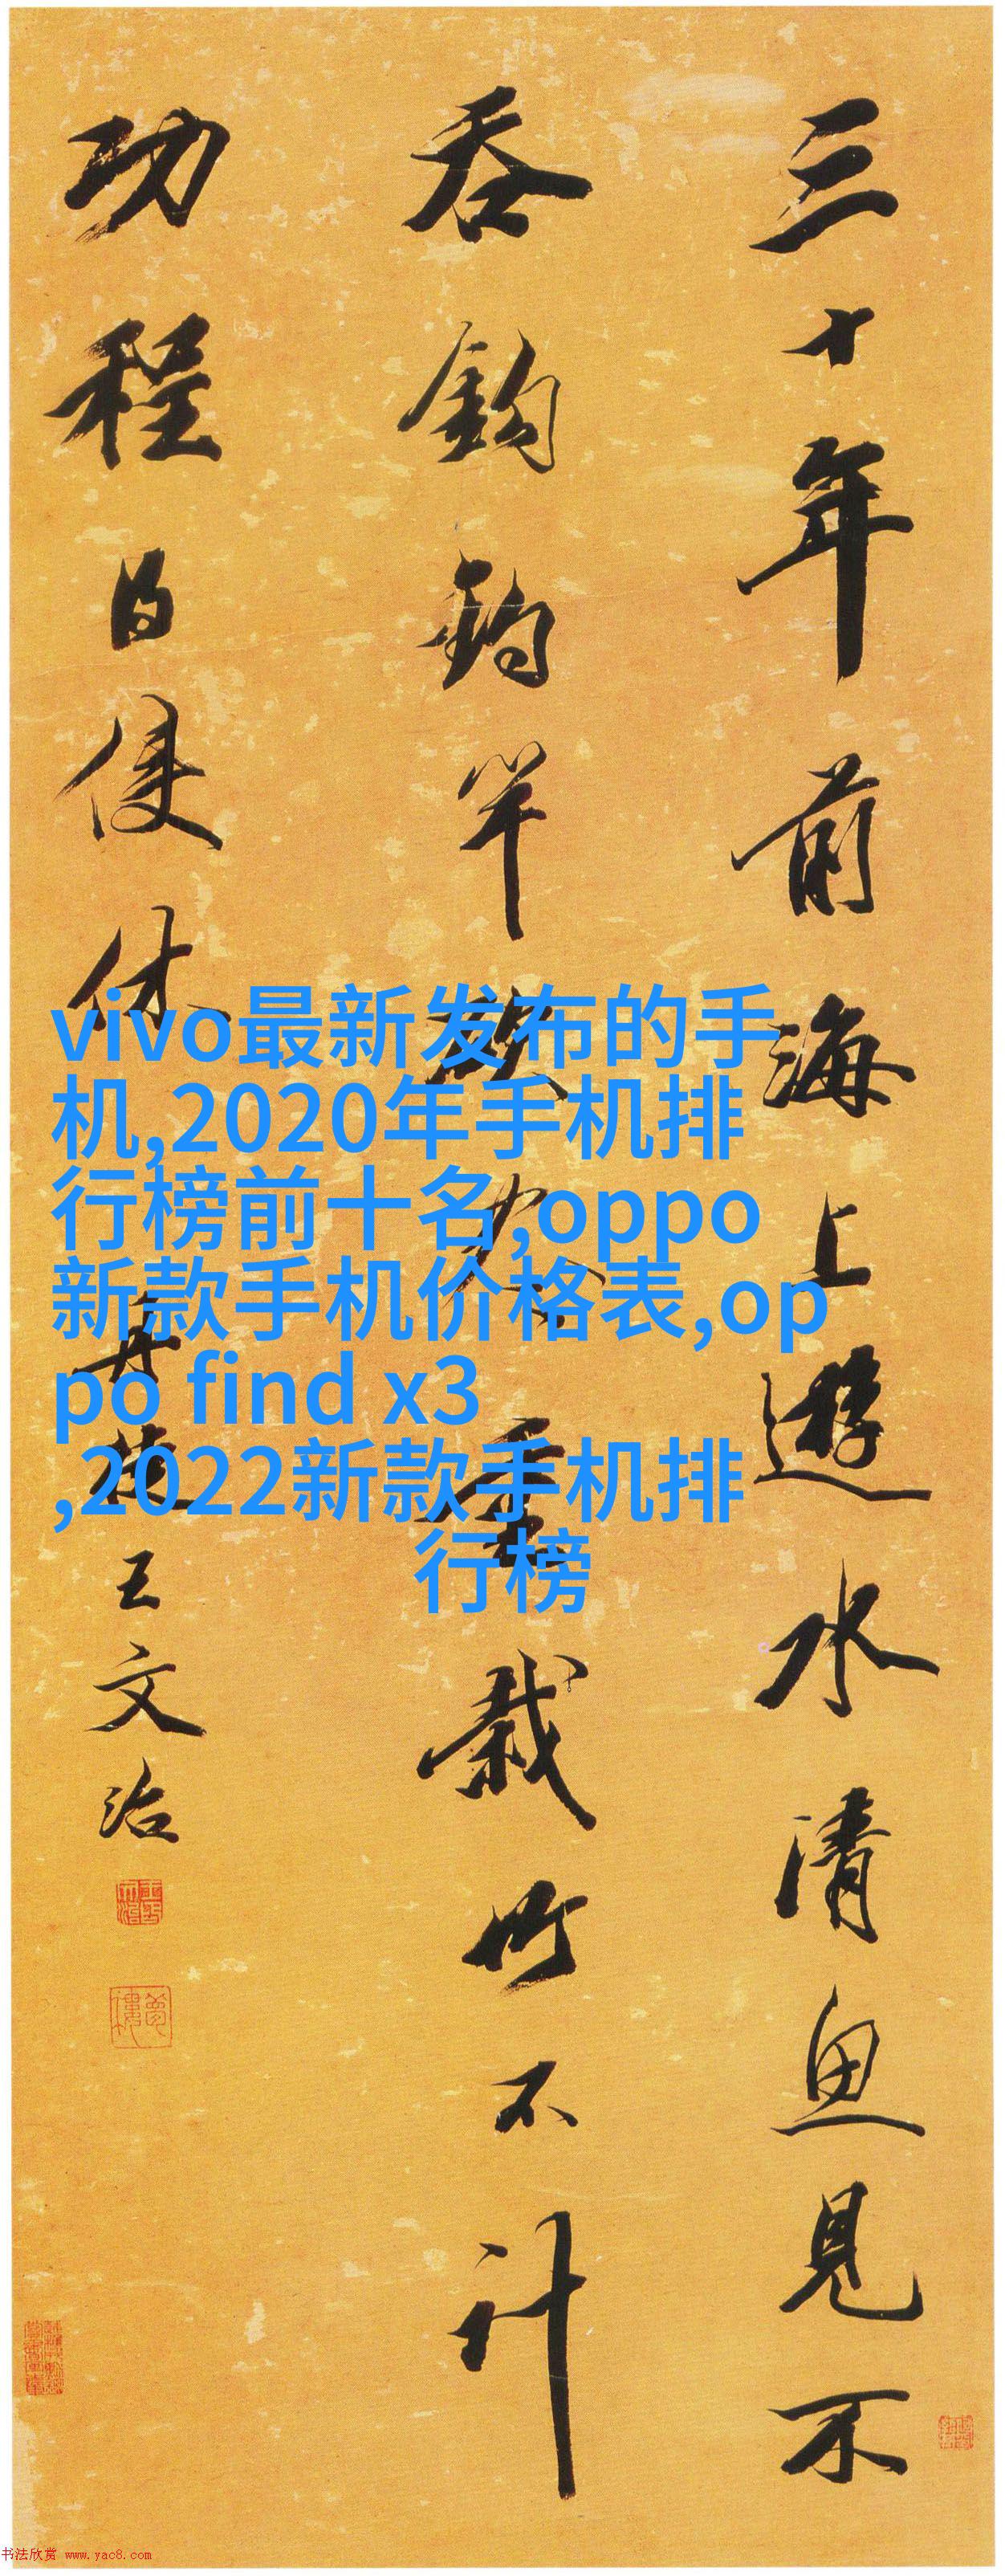 三十年前海上遊水清魚見不
吞鉤鉤竿斫盡重栽竹不計
功程得便休
王文治
vivo最新发布的手
机,2020年手机排
行榜前十名,oppo
新款手机价格表,op
po find x3
,2022新款手机排
行榜
书法欣赏 www.yac8.com